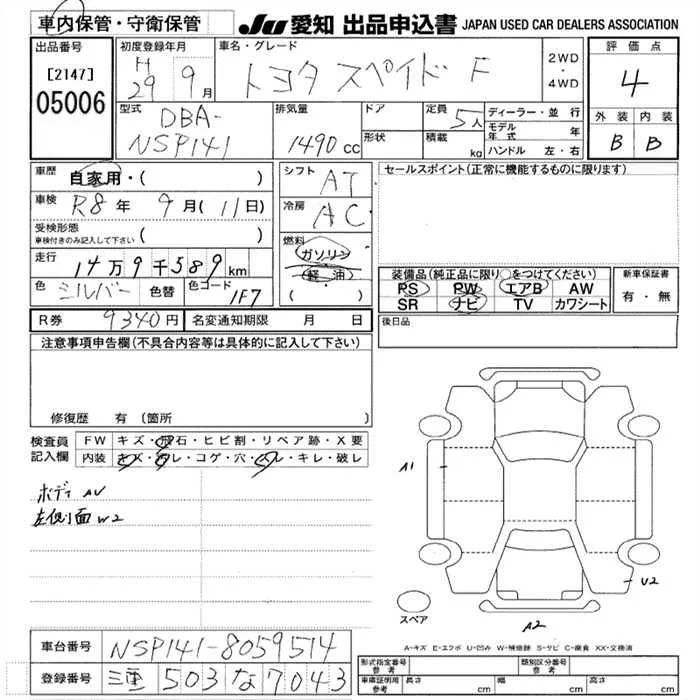 車内保管・守衛保管
JU 愛知 出品申込書 JAPAN USED CAR DEALERS ASSOCIATION
出品番号
[2147]
05006
初度登録年月
H
29 9月
車名・グレード
トヨタ スペイド F
2WD
・
4WD
評価点
4
外装 内装
B B
型式
DBA-
NSP141
排気量
1490 cc
ドア
形状
定員 5人
積載 kg
ディーラー・並行
モデル年式 年
ハンドル 左・右
車歴 自家用・( )
車検 R8年 9月(11日)
受検形態
車検付きのみ記入して下さい ( )
走行 14万9千589km
色 シルバー 色替 色コード 1F7
シフト AT
冷房 AC
燃料 ガソリン
(軽油)
( )
セールスポイント(正常に機能するものに限ります)
装備品(純正品に限り○をつけてください)
PS PW エアB AW
SR ナビ TV カワシート
新車保証書
有・無
R券 9340円 名変通知期限 月 日
後日品
注意事項申告欄(不具合内容等は具体的に記入して下さい)
修復歴 有(箇所 )
検査員
記入欄
FW キズ・飛石・ヒビ割・リペア跡・X要
内装 キズ・汚レ・コゲ・穴・スレ・キレ・破レ
ボディ AU
左側面 W2
A1
U2
スペア
A2
A-キズ E-エクボ U-凹み W-補修跡 S-サビ C-腐食 XX-交換済
車台番号 NSP141-8059514
登録番号 三重 503 な 7043
形式指定番号
参考
類別区分番号
参考
車庫証明用
参考
長さ cm 幅 cm 高さ cm